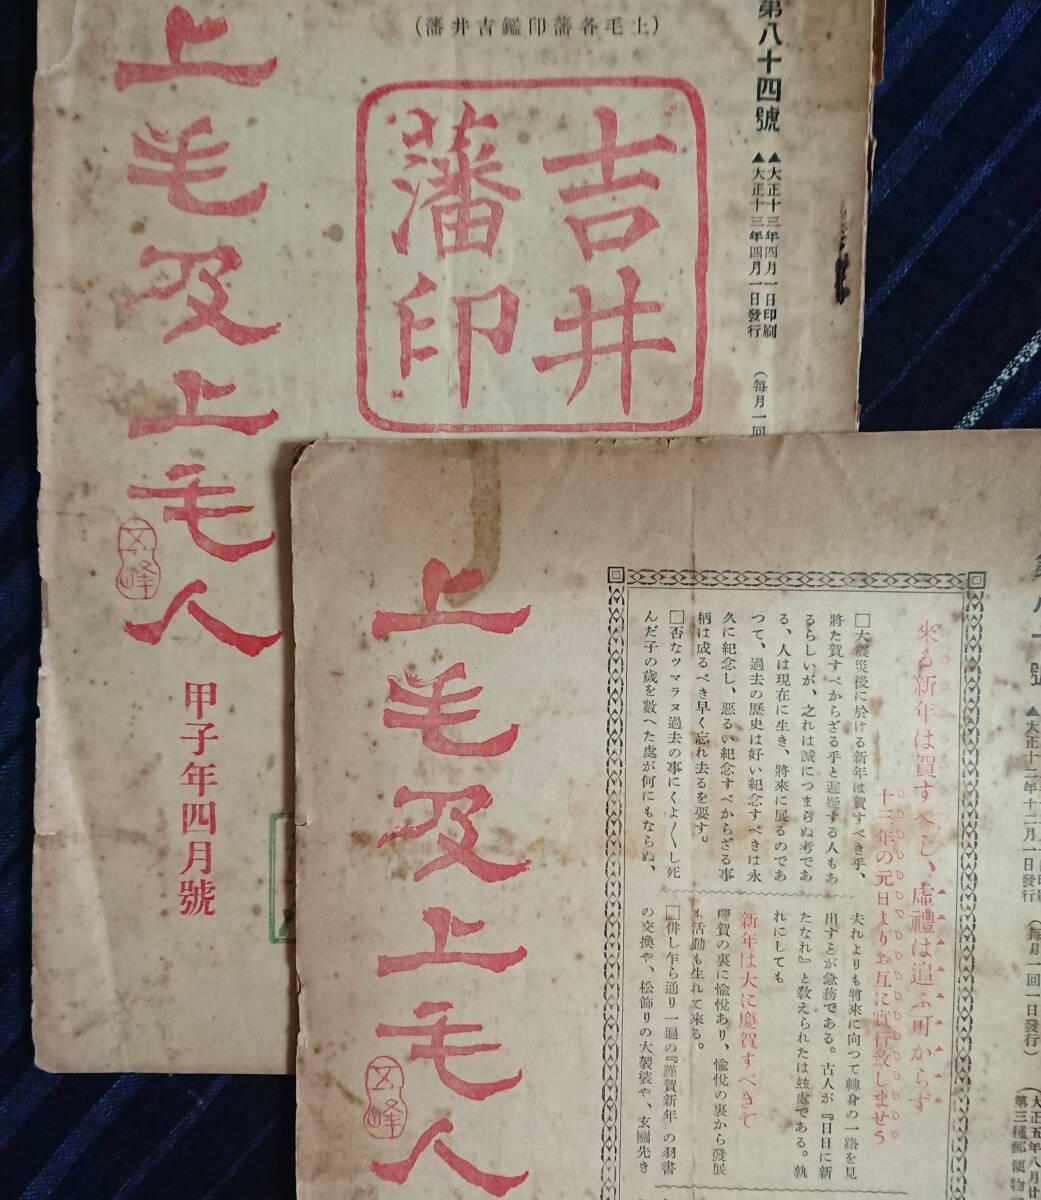 第八十四號
▲大正十三年四月一日印刷
▲大正十三年四月一日發行
(每月一回
(上毛各藩印鑑吉井藩)
吉井
藩印
上毛及上毛人
五峰
甲子年四月號
▲大正十二年十二月一日發行
(每月一回一日發行)
第三種郵便物
來る新年は賀すべし、虛禮は追ふ可からず
十三年の元日よりお互に實行致しませう
□大震災後に於ける新年は賀すべき乎、
將た賀すべからざる乎と遲疑する人もあ
るらしいが、之れは誠につまらぬ考であ
る、人は現在に生き、將來に展るのであ
つて、過去の歷史は好い紀念すべきは永
久に紀念し、惡るい紀念すべからざる事
柄は成るべき早く忘れ去るを要す。
□否なツマラヌ過去の事にくよ〱し死
んだ子の歲を數へた處が何にもならぬ、
夫れよりも將來に向つて轉身の一路を見
出すとが急務である。古人が『日日に新
たなれ』と敎えられたは玆處である。孰
れにしても
新年は大に慶賀すべきて
慶賀の裏に愉悅あり、愉悅の裏から發展
も活動も生れて來る。
□併し乍ら通り一遍の『謹賀新年』の羽書
の交換や、松飾りの大袈裟や、玄關先き
上毛及上毛人
五峰